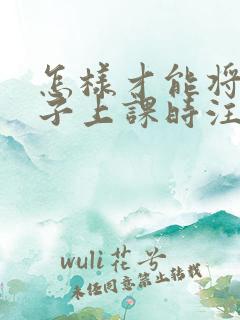 怎樣才能將
子上課時注
wuli花兮
未经同意禁止转载